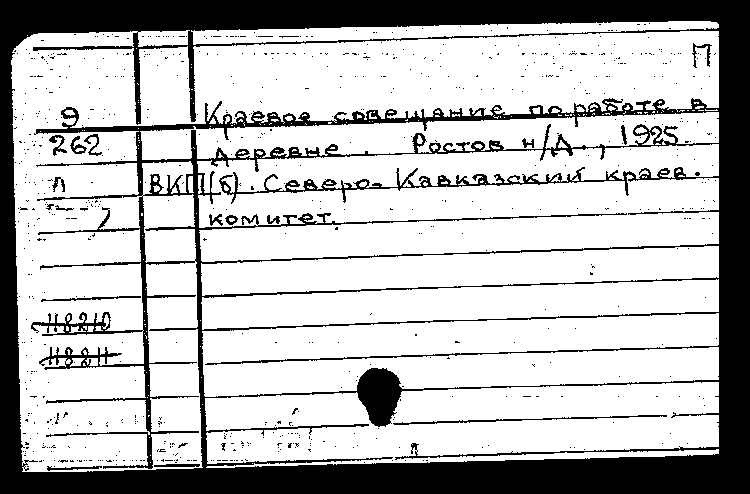 П
9 Краевое совещание по работе в
262 деревне. Ростов н/Д., 1925.
л ВКП(б). Северо-Кавказский краев.
комитет.
118210
118211